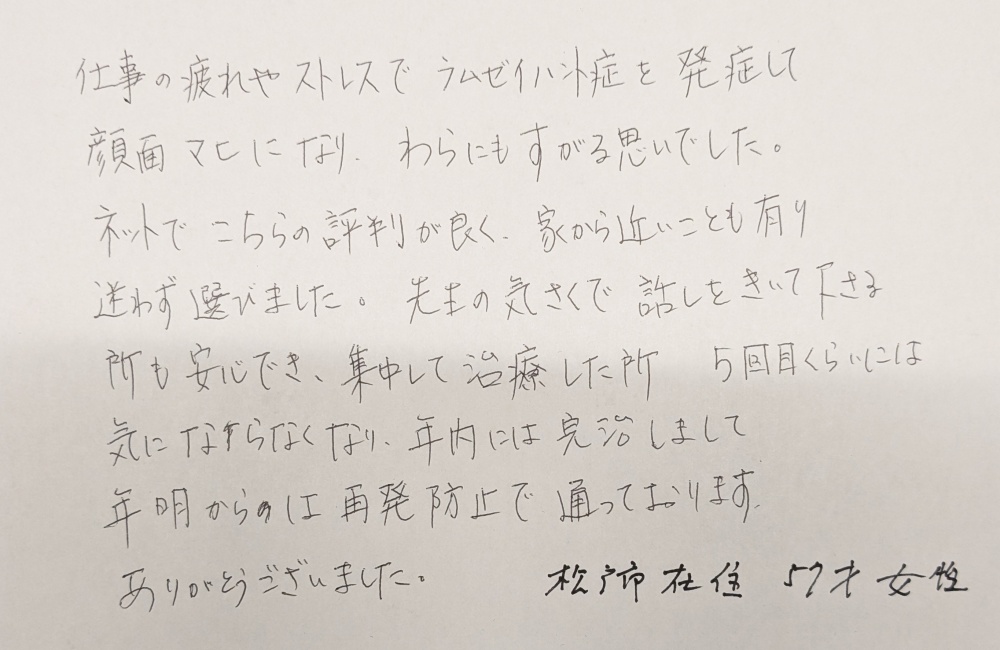 仕事の疲れやストレスで ラムゼイハント症を 発症して
顔面マヒになり、わらにもすがる思いでした。
ネットでこちらの評判が良く、家から近いことも有り
迷わず選びました。先生の気さくで 話しをきいて下さる
所も安心でき、集中して治療した所 5回目くらいには
気にならなくなり、年内には完治しまして
年明からのは再発防止で通っております。
ありがとうございました。
松戸市在住 57才女性